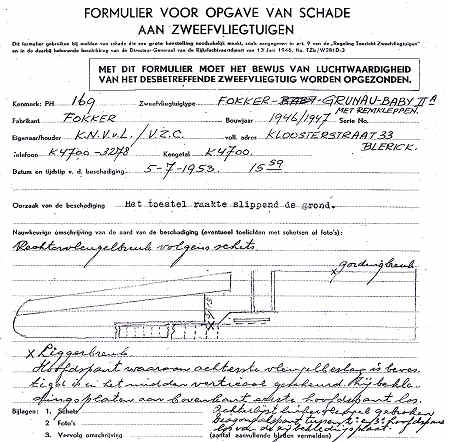 FORMULIER VOOR OPGAVE VAN SCHADE
AAN ZWEEFVLIEGTUIGEN
Dit formulier gebruiken bij melden van schade die een grote herstelling noodzakelijk maakt, zoals aangegeven in art. 9 van de „Regeling Toezicht Zweefvliegtuigen”
en in de daarbij behorende beschikking van de Directeur-Generaal van de Rijksluchtvaartdienst van 13 Juni 1946, No.
MET DIT FORMULIER MOET HET BEWIJS VAN LUCHTWAARDIGHEID
VAN HET DESBETREFFENDE ZWEEFVLIEGTUIG WORDEN OPGEZONDEN.
Kenmerk: PH 169 Zweefvliegtuigtype FOKKER-BABY-GRUNAU-BABY II A
MET REMKLEPPEN.
Fabrikant FOKKER Bouwjaar 1946/1947 Serie No.
Eigenaar/houder K.N.V.v.L./V.Z.C. voll. adres KLOOSTERSTRAAT 33
Telefoon K4700-3278 Kengetal K4700. BLERICK.
Datum en tijdstip v. d. beschadiging 5-7-1953. 15 59
Oorzaak van de beschadiging Het toestel raakte slippend de grond.
Nauwkeurige omschrijving van de aard van de beschadiging (eventueel toelichten met schetsen of foto's):
Rechtervleugelbreuk volgens schets.
x gordingbreuk
X
X Liggerbreuk
Hoofdspant waaraan achterste vleugelbeslag is beves
tigd is in het midden verticaal gescheurd. Bij bekle
dingsplaten aan bovenkant achterste hoofdspant los.
Bijlagen: 1. Schets
2 Foto's
3. Vervolg omschrijving
(aantal aanvullende bladen vermelden)